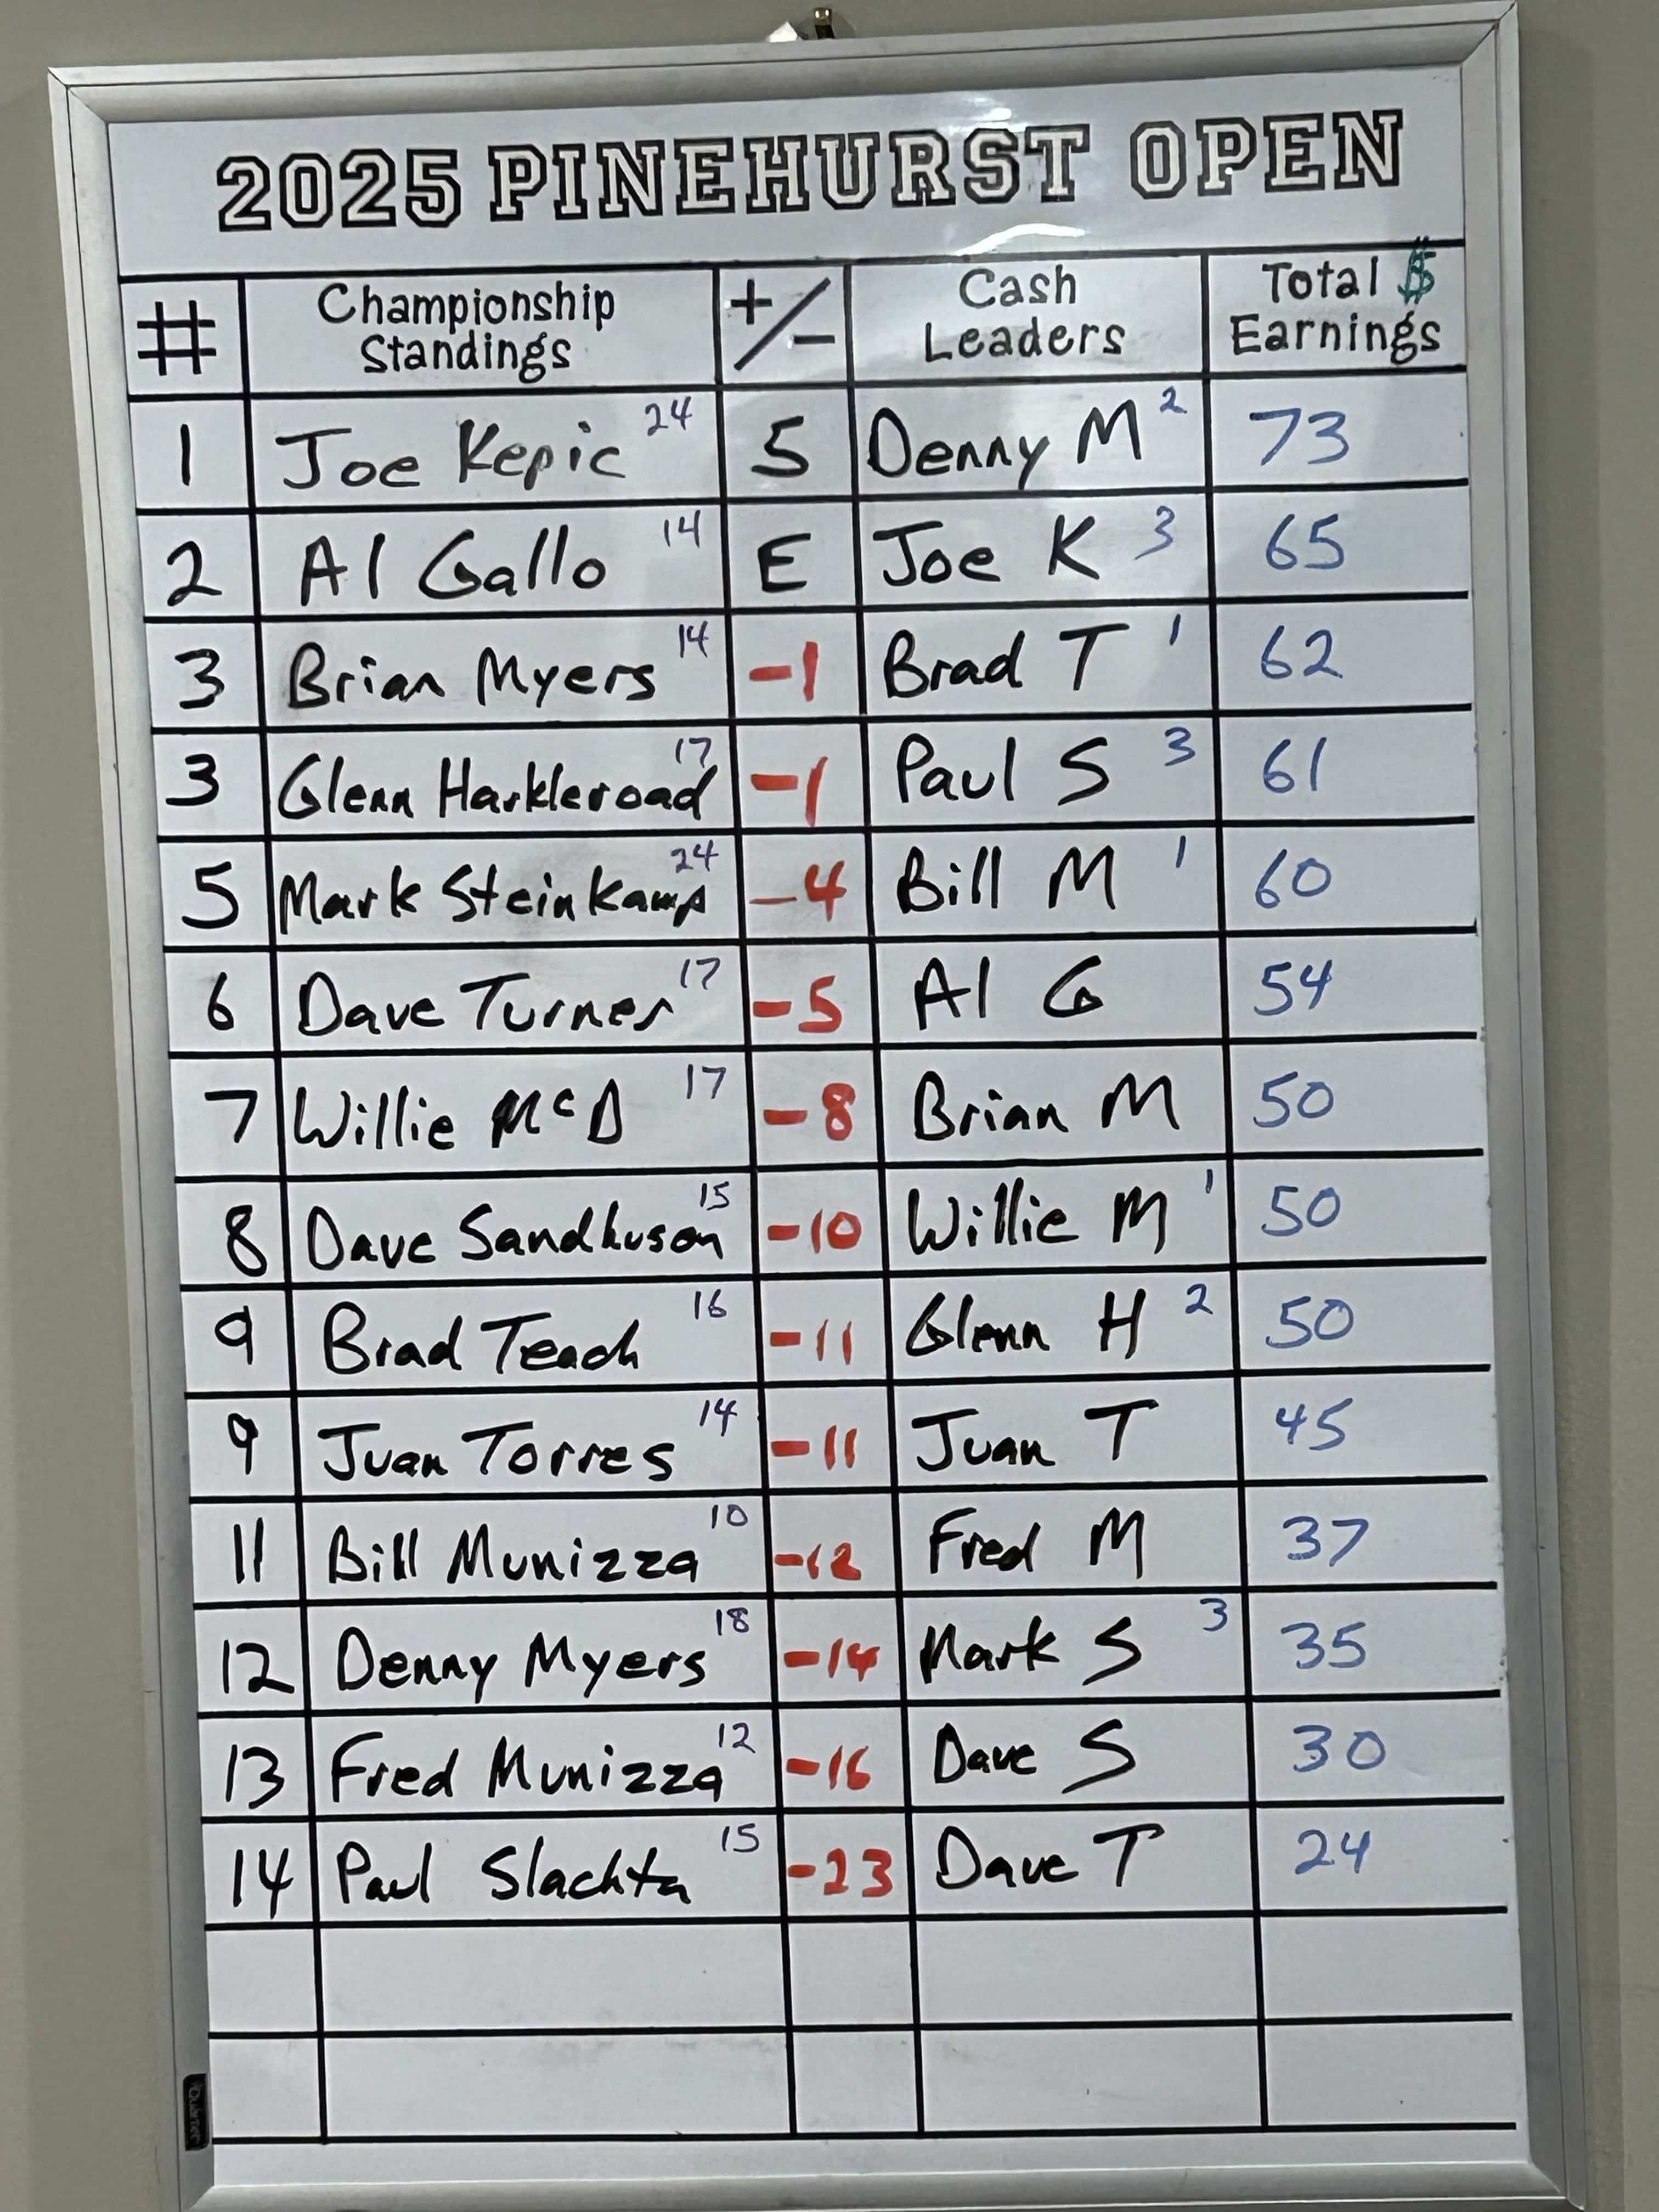 2025 PINEHURST OPEN
# Championship Standings +/- Cash Leaders Total $ Earnings
1 Joe Kepic 24 5 Denny M 2 73
2 Al Gallo 14 E Joe K 3 65
3 Brian Myers 14 -1 Brad T 1 62
3 Glenn Harkleroad 17 -1 Paul S 3 61
5 Mark Steinkamp 24 -4 Bill M 1 60
6 Dave Turner 17 -5 Al G 54
7 Willie McD 17 -8 Brian M 50
8 Dave Sandhuson 15 -10 Willie M 1 50
9 Brad Teach 16 -11 Glenn H 2 50
9 Juan Torres 14 -11 Juan T 45
11 Bill Munizza 10 -12 Fred M 37
12 Denny Myers 18 -14 Mark S 3 35
13 Fred Munizza 12 -16 Dave S 30
14 Paul Slachta 15 -23 Dave T 24